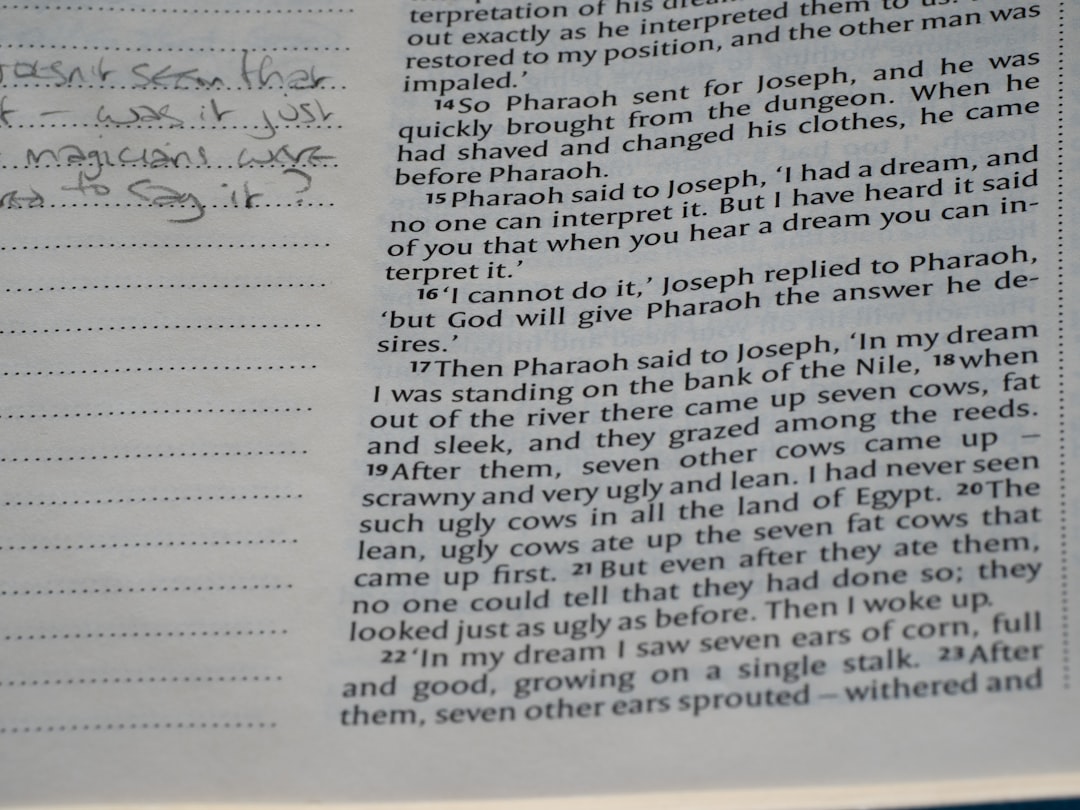 doesn't seem that
t – was it just
magicians were
to say it?
terpretation of his dream
out exactly as he interpreted them to us: I
restored to my position, and the other man was
impaled.’
14 So Pharaoh sent for Joseph, and he was
quickly brought from the dungeon. When he
had shaved and changed his clothes, he came
before Pharaoh.
15 Pharaoh said to Joseph, ‘I had a dream, and
no one can interpret it. But I have heard it said
of you that when you hear a dream you can in-
terpret it.’
16 ‘I cannot do it,’ Joseph replied to Pharaoh,
‘but God will give Pharaoh the answer he de-
sires.’
17 Then Pharaoh said to Joseph, ‘In my dream
I was standing on the bank of the Nile, 18 when
out of the river there came up seven cows, fat
and sleek, and they grazed among the reeds.
19 After them, seven other cows came up –
scrawny and very ugly and lean. I had never seen
such ugly cows in all the land of Egypt. 20 The
lean, ugly cows ate up the seven fat cows that
came up first. 21 But even after they ate them,
no one could tell that they had done so; they
looked just as ugly as before. Then I woke up.
22 ‘In my dream I saw seven ears of corn, full
and good, growing on a single stalk. 23 After
them, seven other ears sprouted – withered and